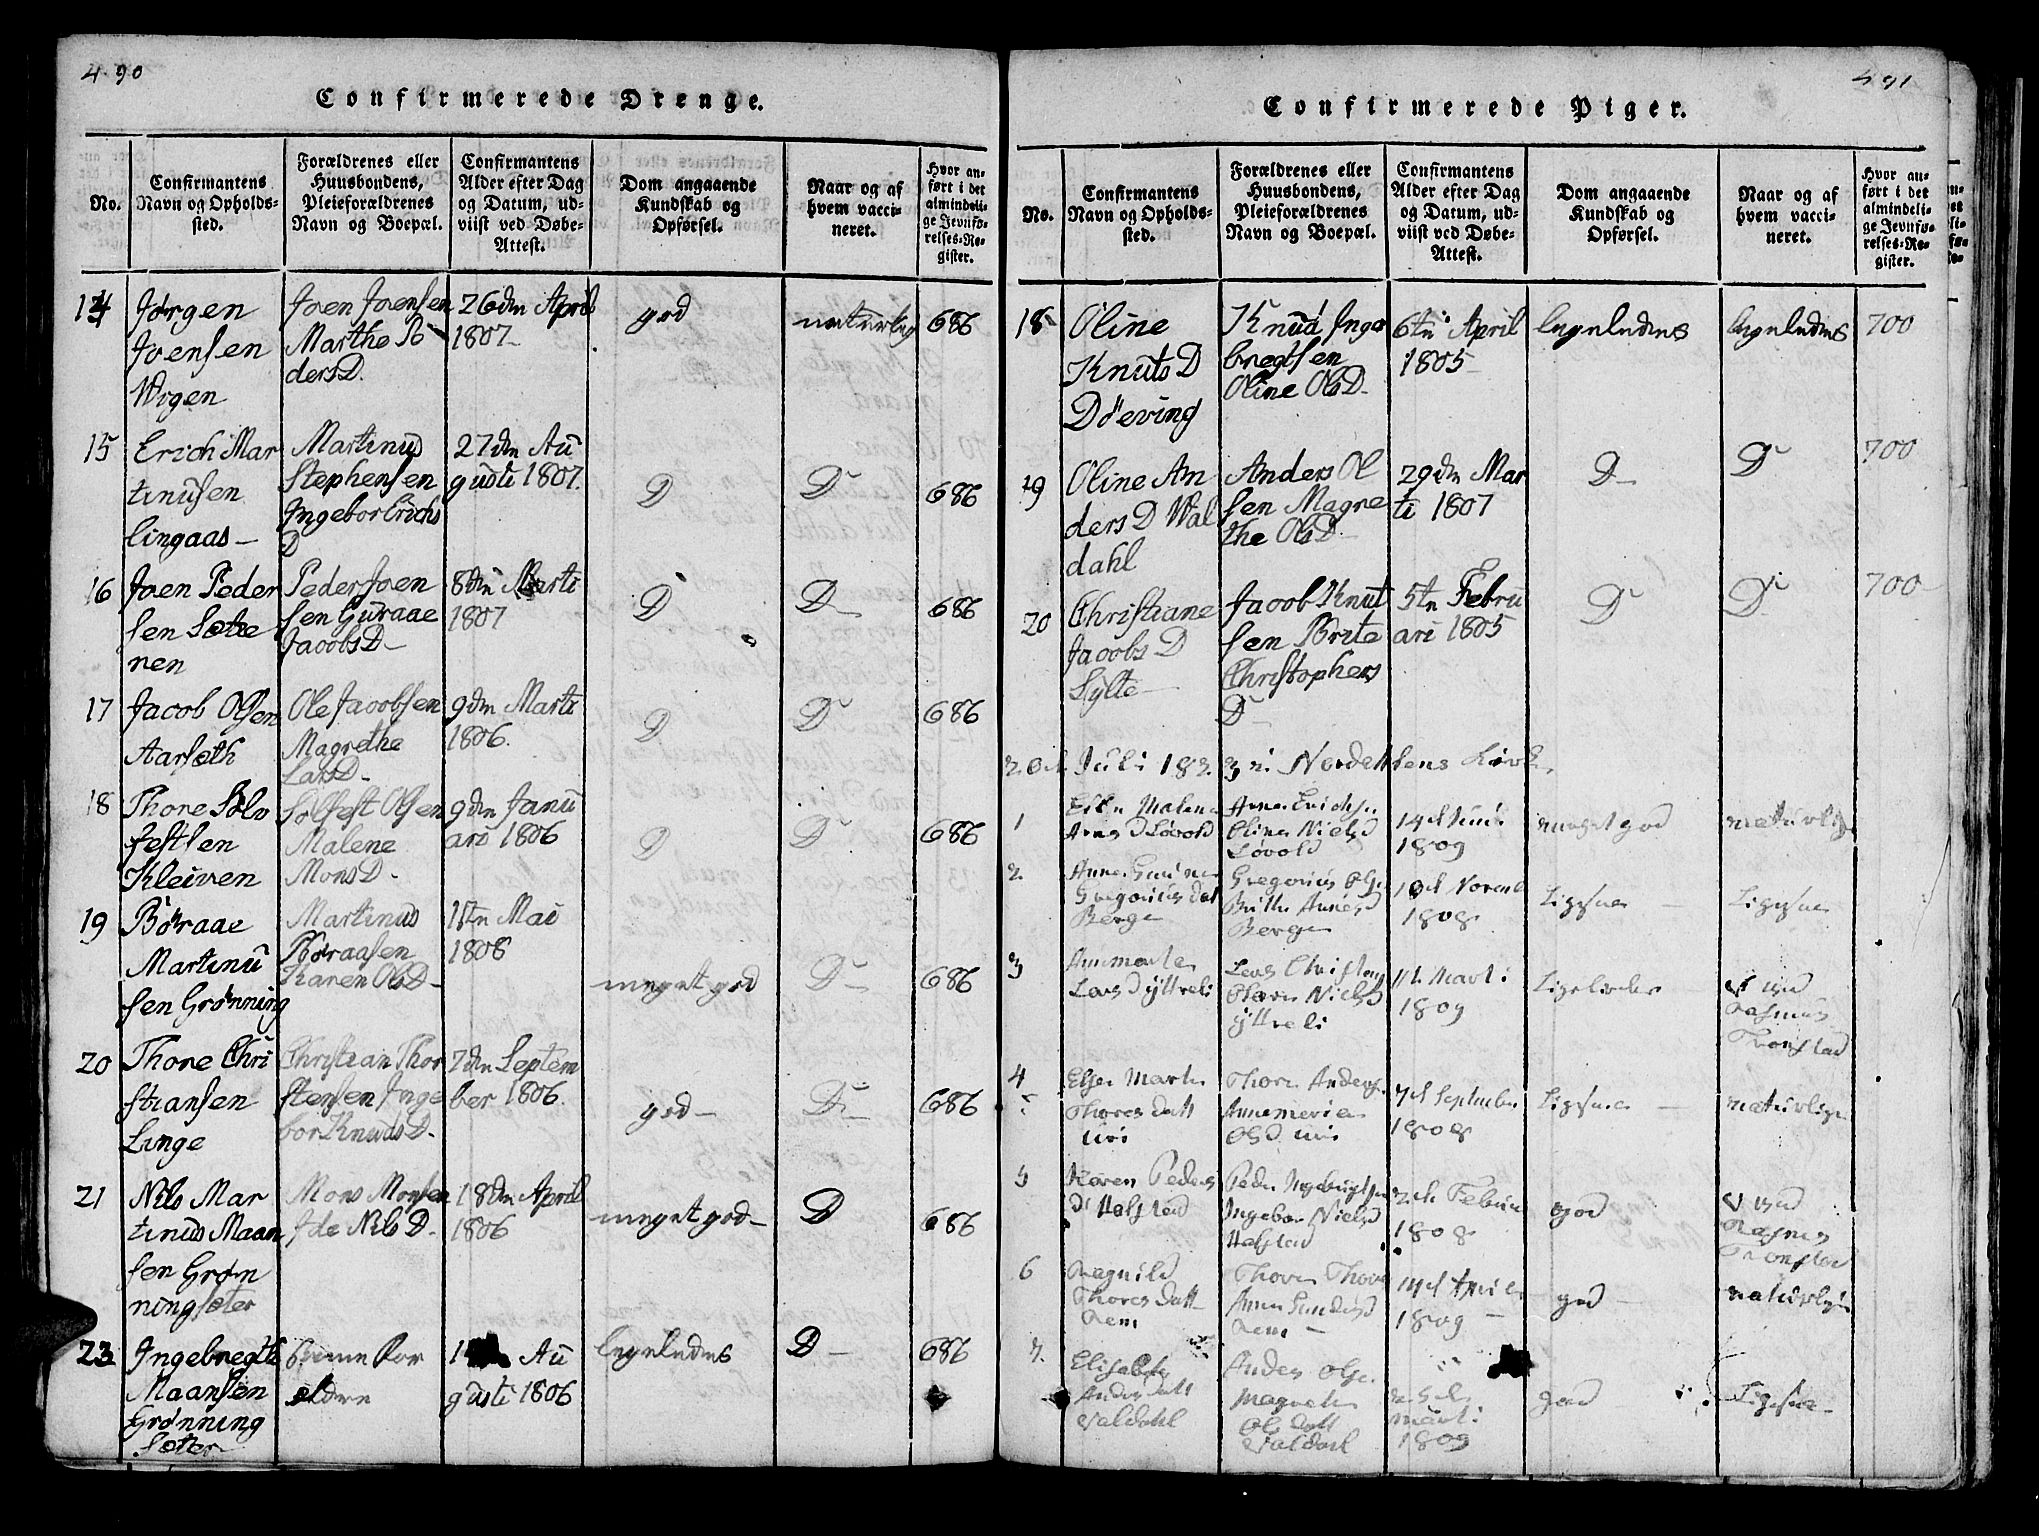 490
Confirmerede Drenge.
No.
Confirmantens
Navn og Opholds-
sted.
Forældrenes eller
Huusbondens,
Pleieforældrenes
Navn og Boepæl.
Confirmantens
Alder efter Dag
og Datum, ud-
viist ved Døbe-
Attest.
Dom angaaende
Kundskab og
Opførsel.
Naar og af
hvem vacci-
neret.
Hvor an-
ført i det
almindeli-
ge Jevnfø-
relses-Re-
gister.
14
Jørgen
Joensen
Wigen
Joen Joensen
Marthe Pe
dersD.
26dn April
1807
god
naturlig
686
15
Erich Mar
tinusen
Lingaas
Martinus
Stephensen
Ingebor Erichs
D
27dn Au
gusti 1807.
D
D
686
16
Joen Peder
sen Sætre
nen
Peder Joen
sen Guraae
JacobsD
8tn Marti
1807
D
D
686
17
Jacob Olsen
Aarsæth
Ole Jacobsen
Magrethe
LarsD
9dn Marti
1806.
D
D
686
18
Thore Sølv
festsen
Kleiven
Sølfest Olsen
Malene
MonsD.
9dn Janu
ari 1806
D
D
686
19
Børaae
Martinu
sen Grønning
Martinus
Børaasen
Karen OlsD
1tn Mai
1808
meget god
D
686
20
Thore Chri
stiansen
Linge
Christian Thor
stensen Inge
bor KnudsD.
7dn Septem
ber 1806.
god
D
686
21
Nils Mar
tinus Maan
sen Grøn
ningsæter
Mons Monsen
Ide NilsD.
18dn April
1806
meget god
D
686
23
Ingebregth
Maansen
Grønning
Sæter
samme For
ældre
Au
gusti 1806
legeledes
D
686
491
Confirmerede Piger.
No.
Confirmantens
Navn og Opholds-
sted.
Forældrenes eller
Huusbondens,
Pleieforældrenes
Navn og Boepæl.
Confirmantens
Alder efter Dag
og Datum, ud-
viist ved Døbe-
Attest.
Dom angaaende
Kundskab og
Opførsel.
Naar og af
hvem vacci-
neret.
Hvor an-
ført i det
almindeli-
ge Jevnfø-
relses-Re-
gister.
18
Oline
KnutsD
Döeving
Knud Inge
bregtsen
Oline OlsD
6tn April
1805
legeledes
legeledes
700
19
Oline An
dersD Wal
dahl
Anders Ol
sen Magre
the OlsD
29dn Mar
ti 1807
D
D
700
20
Christiane
JacobsD
Sylte
Jacob Knut
sen Brite
Christophers
D
5tn Febru
ari 1805
D
D
700
Juli 182 3 i Nordahlens Kirk
1
Malene
Løvold
Oline Nielsd
Løvold
14d Juni
1809
meget god
naturlig
2
Anne
Gregorius dat
Berge
Gregorius Ols
Brithe
Berge
Novemb
1808
Ligesaa
Ligesaa
3
Annemarte
Larsd Yttreli
Lars
Nielsd
Yttreli
Marti
1809
Ligeledes
Rasmus
Tronstad
4
Else Marte
Thores datt
Uri
Thore Anders
Annemarie
Olsd Uri
7d September
1808
Ligesaa
naturlige
5
Karen Peders
d Hofstad
Peder Ingebrigtsen
Ingebor Nielsd
Hofstad
2d Februa
1808
god
Rasmus
Tronstad
6
Ragnild
Thores datt
Rem
Thore Thore
Anne
Rem
14d April
1809
god
naturlige
7.
Elisabeth
Anders datt
Valdahl
Anders Olse
Magrete
Ols datt
Valdahl
25de
Marti
1809
god
Ligesaa